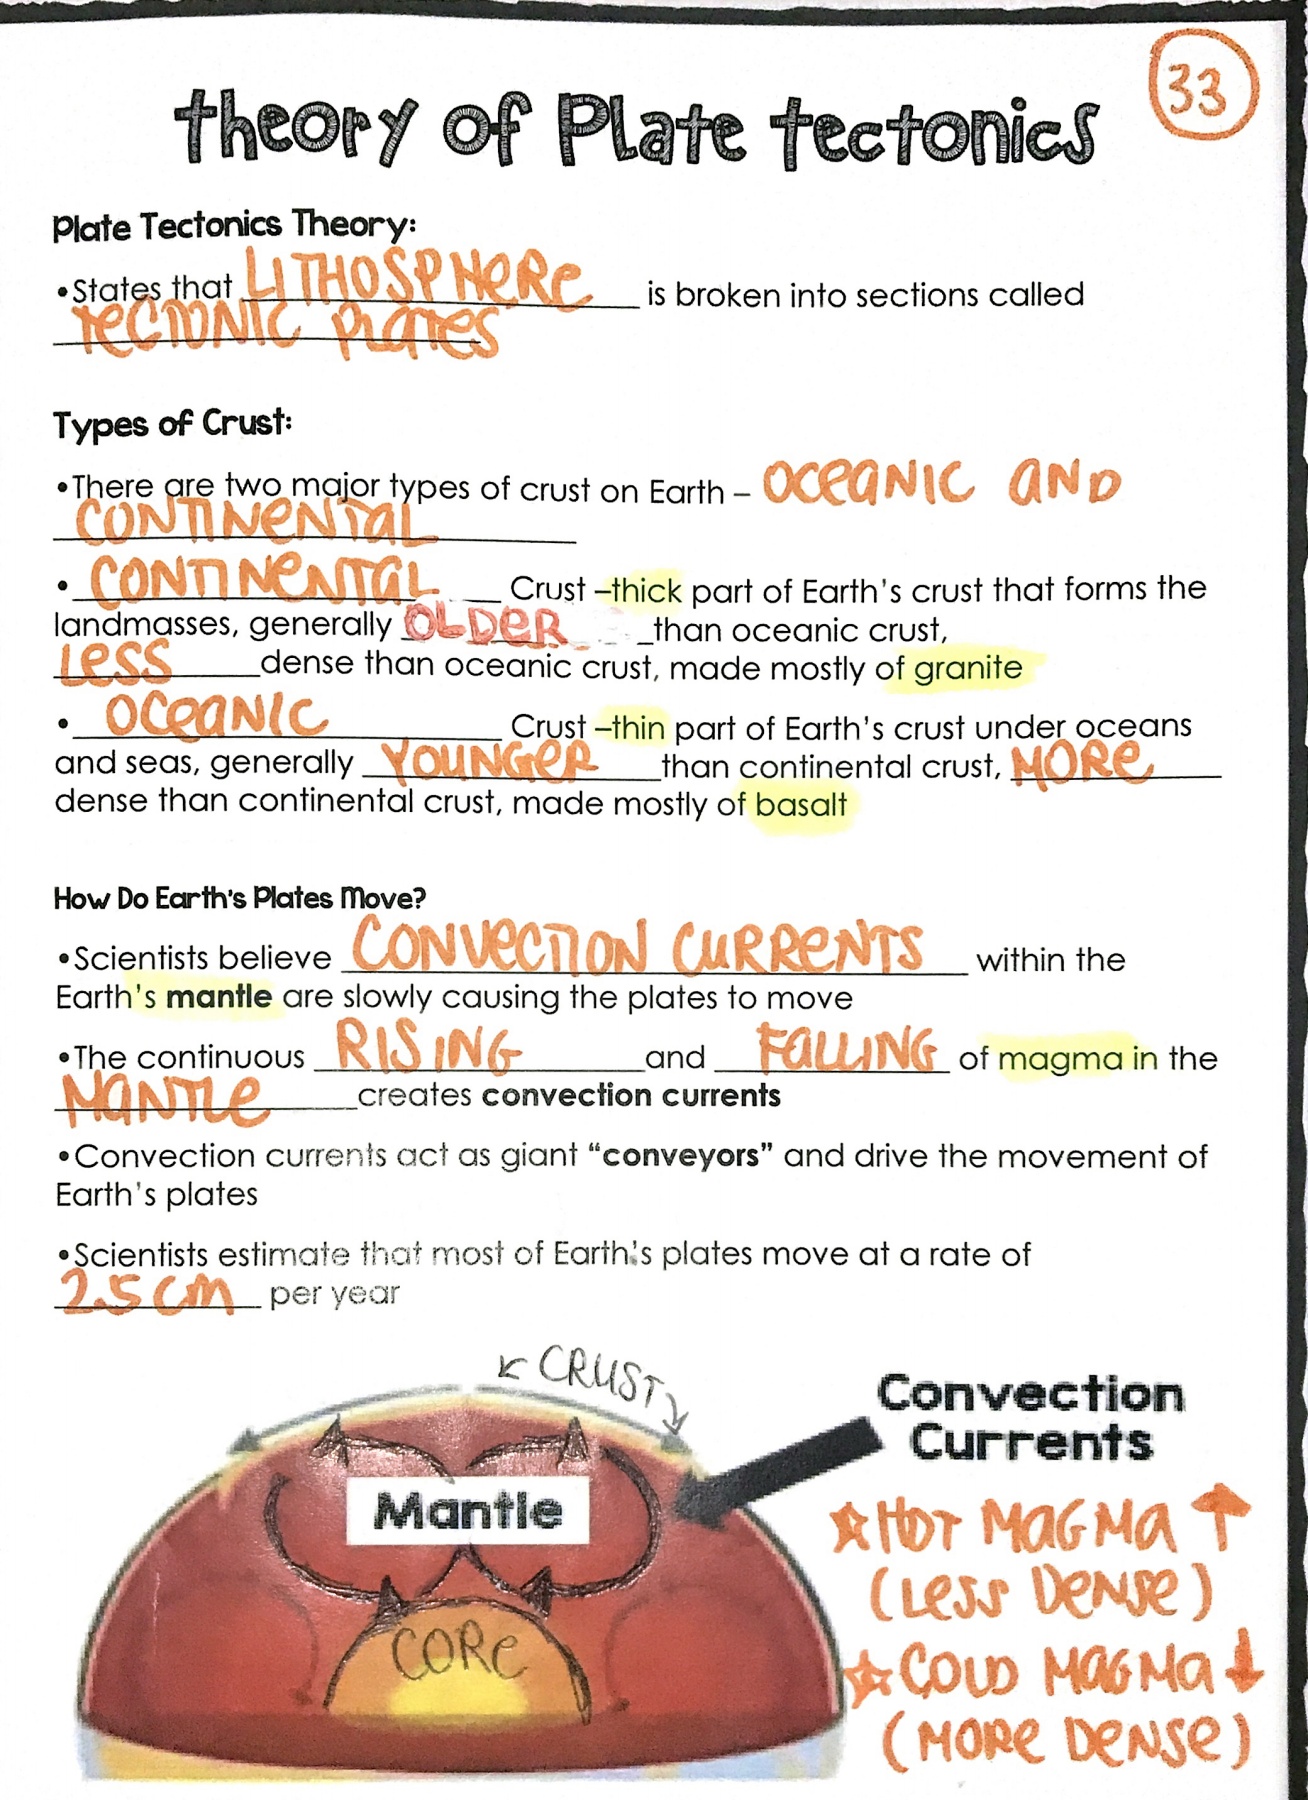 33
Theory of Plate Tectonics
Plate Tectonics Theory:
•States that LITHOSPHERE is broken into sections called
TECTONIC PLATES
Types of Crust:
•There are two major types of crust on Earth – OCEANIC AND
CONTINENTAL
• CONTINENTAL Crust –thick part of Earth's crust that forms the
landmasses, generally OLDER than oceanic crust,
LESS dense than oceanic crust, made mostly of granite
• OCEANIC Crust –thin part of Earth's crust under oceans
and seas, generally YOUNGER than continental crust, MORE
dense than continental crust, made mostly of basalt
How Do Earth's Plates Move?
•Scientists believe CONVECTION CURRENTS within the
Earth's mantle are slowly causing the plates to move
•The continuous RISING and FALLING of magma in the
MANTLE creates convection currents
•Convection currents act as giant “conveyors” and drive the movement of
Earth's plates
•Scientists estimate that most of Earth's plates move at a rate of
2.5 cm per year
CRUST
Convection
Currents
Mantle
☆HOT MAGMA ↑
(LESS DENSE)
CORE
☆COLD MAGMA ↓
(MORE DENSE)